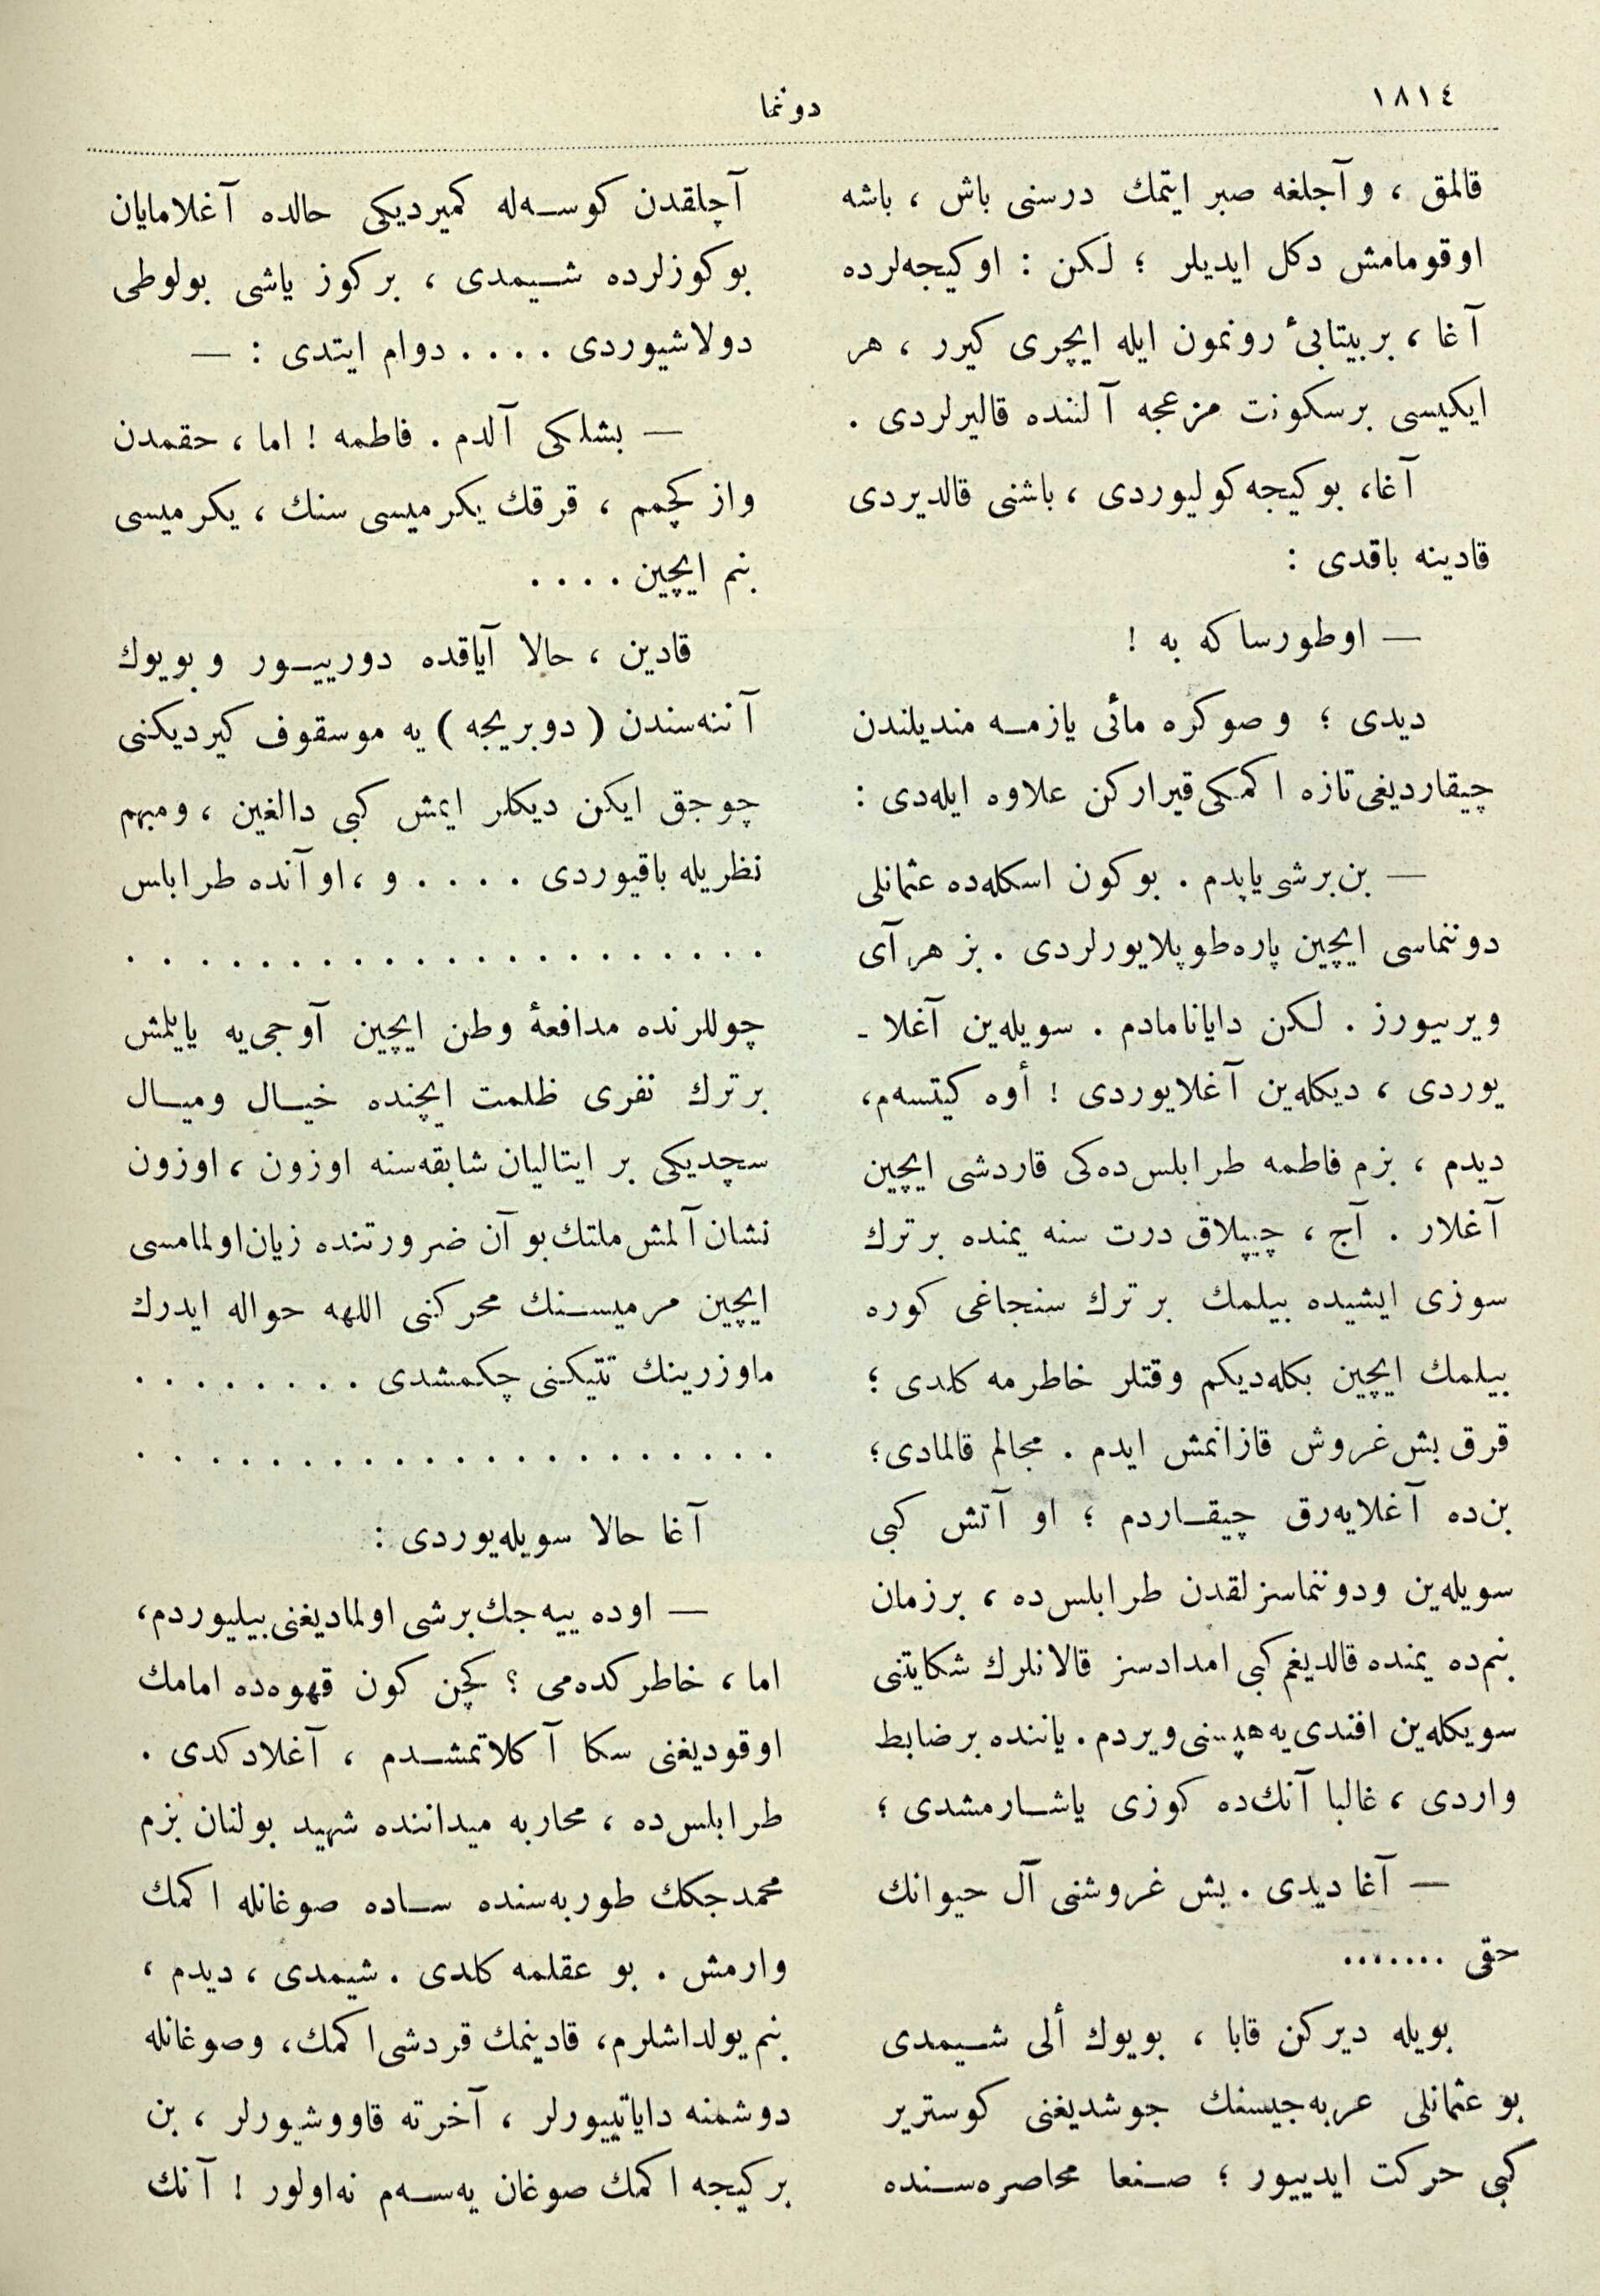 ١٨١٤
دوننما
قالمق ، و آجلغه صبر ایتمك درسنی باش ، باشه
اوقومامش دكل ایدیلر ؛ لكن : او كیجه‌لرده
آغا ، بر بیتابیٔ رونمون ایله ایچری كیرر ، هر
ایكیسی بر سكونت مزعجه آلتنده قالیرلردی .
آغا، بو كیجه كولیوردی ، باشنی قالدیردی
قادینه باقدی :
— اوطورساكه به !
دیدی ؛ و صوكره مائی یازمه مندیلندن
چیقاردیغی تازه اكمكی قیراركن علاوه ایله‌دی :
— بن بر شی یاپدم . بوكون اسكله‌ده عثمانلی
دوننماسی ایچین پاره طوپلایورلردی . بز هر آی
ویرییورز . لكن دایانامادم . سویله‌ین آغلا -
یوردی ، دیكله‌ین آغلایوردی ! أوه كیتسه‌م،
دیدم ، بزم فاطمه طرابلس‌ده‌كی قاردشی ایچین
آغلار . آج ، چیپلاق درت سنه یمنده بر ترك
سوزی ایشیده بیلمك بر ترك سنجاغی كوره
بیلمك ایچین بكله‌دیكم وقتلر خاطرمه كلدی ؛
قرق بش غروش قازانمش ایدم . مجالم قالمادی؛
بن‌ده آغلایه‌رق چیقاردم ؛ او آتش كبی
سویله‌ین ودوننماسزلقدن طرابلس‌ده ، بر زمان
بنم‌ده یمنده قالدیغم كبی امدادسز قالانلرك شكایتنی
سویكله‌ین افندی‌یه هپسنی ویردم . یاننده بر ضابط
واردی ، غالبا آنك‌ده كوزی یاشارمشدی ؛
— آغا دیدی . بش غروشنی آل حیوانك
حقی .......
بویله دیركن قابا ، بویوك ألی شیمدی
بو عثمانلی عربه‌جیسنك جوشدیغنی كوستریر
كبی حركت ایدییور ؛ صنعا محاصره‌سنده
آچلقدن كوسه‌له كمیردیكی حالده آغلامایان
بو كوزلرده شیمدی ، بر كوز یاشی بولوطی
دولاشیوردی .... دوام ایتدی : —
— بشلكی آلدم . فاطمه ! اما ، حقمدن
واز كچمم ، قرقك یكرمیسی سنك ، یكرمیسی
بنم ایچین ....
قادین ، حالا آیاقده دورییور و بویوك
آننه‌سندن ( دوبریجه ) یه موسقوف كیردیكنی
چوجق ایكن دیكلر ایمش كبی دالغین ، ومبهم
نظریله باقیوردی .... و ، او آنده طرابلس
. . . . . . . . . . . . . . . . . . . . .
چوللرنده مدافعهٔ وطن ایچین آوجی‌یه یایلمش
بر ترك نفری ظلمت ایچنده خیال ومیال
سچدیكی بر ایتالیان شابقه‌سنه اوزون ، اوزون
نشان آلمش ملتك بو آن ضرورتنده زیان اولمامسی
ایچین مرمیسنك محركنی اللهه حواله ایدرك
ماوزرینك تتیكنی چكمشدی . . . . . . . .
. . . . . . . . . . . . . . . . . . . . .
آغا حالا سویله‌یوردی :
— اوده ییه‌جك بر شی اولمادیغنی بیلیوردم،
اما ، خاطركده‌می ؟ كچن كون قهوه‌ده امامك
اوقودیغنی سكا آكلاتمشدم ، آغلادكدی .
طرابلس‌ده ، محاربه میداننده شهید بولنان بزم
محمدجكك طوربه‌سنده ساده صوغانله اكمك
وارمش . بو عقلمه كلدی . شیمدی ، دیدم ،
بنم یولداشلرم، قادینمك قردشی اكمك، وصوغانله
دوشمنه دایاتییورلر ، آخرته قاووشیورلر ، بن
بر كیجه اكمك صوغان یه‌سه‌م نه‌اولور ! آنك